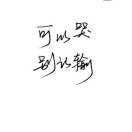 可以哭
别认输